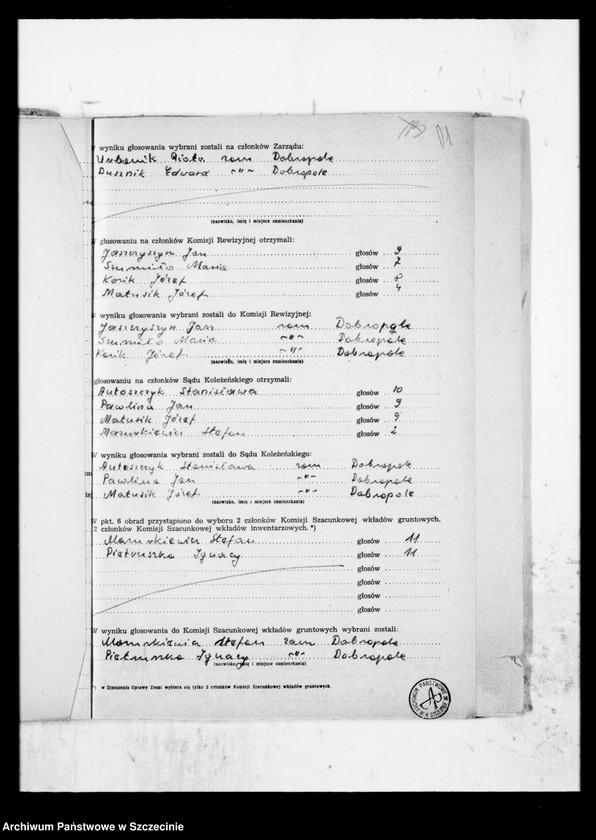 11
W wyniku głosowania wybrani zostali na członków Zarządu:
Urbanik Piotr zam Dobropole
Dusznik Edward -"- Dobropole
(nazwisko, imię i miejsce zamieszkania)
W głosowaniu na członków Komisji Rewizyjnej otrzymali:
Jaszczyszyn Jan głosów 9
Szmiło Maria głosów 7
Korik Józef głosów 8
Matusik Józef głosów 4
W wyniku głosowania wybrani zostali do Komisji Rewizyjnej:
Jaszczyszyn Jan zam Dobropole
Szmiło Maria -"- Dobropole
Korik Józef -"- Dobropole
(nazwisko, imię i miejsce zamieszkania)
głosowaniu na członków Sądu Koleżeńskiego otrzymali:
Antoszczyk Stanisława głosów 10
Pawlina Jan głosów 9
Matusik Józef głosów 9
Mazurkiewicz Stefan głosów 2
W wyniku głosowania wybrani zostali do Sądu Koleżeńskiego:
Antoszczyk Stanisława zam Dobropole
Pawlina Jan -"- Dobropole
Matusik Józef -"- Dobropole
(nazwisko, imię i miejsce zamieszkania)
W pkt. 6 obrad przystąpiono do wyboru 2 członków Komisji Szacunkowej wkładów gruntowych,
2 członków Komisji Szacunkowej wkładów inwentarzowych.*)
Mazurkiewicz Stefan głosów 11
Pietruszka Ignacy głosów 11
głosów
głosów
głosów
głosów
W wyniku głosowania do Komisji Szacunkowej wkładów gruntowych wybrani zostali:
Mazurkiewicz Stefan zam Dobropole
Pietruszka Ignacy -"- Dobropole
(nazwisko, imię i miejsce zamieszkania)
*) w Zrzeszeniu Uprawy Ziemi wybiera się tylko 2 członków Komisji Szacunkowej wkładów gruntowych.
ARCHIWUM PAŃSTWOWE W SZCZECINIE
Archiwum Państwowe w Szczecinie